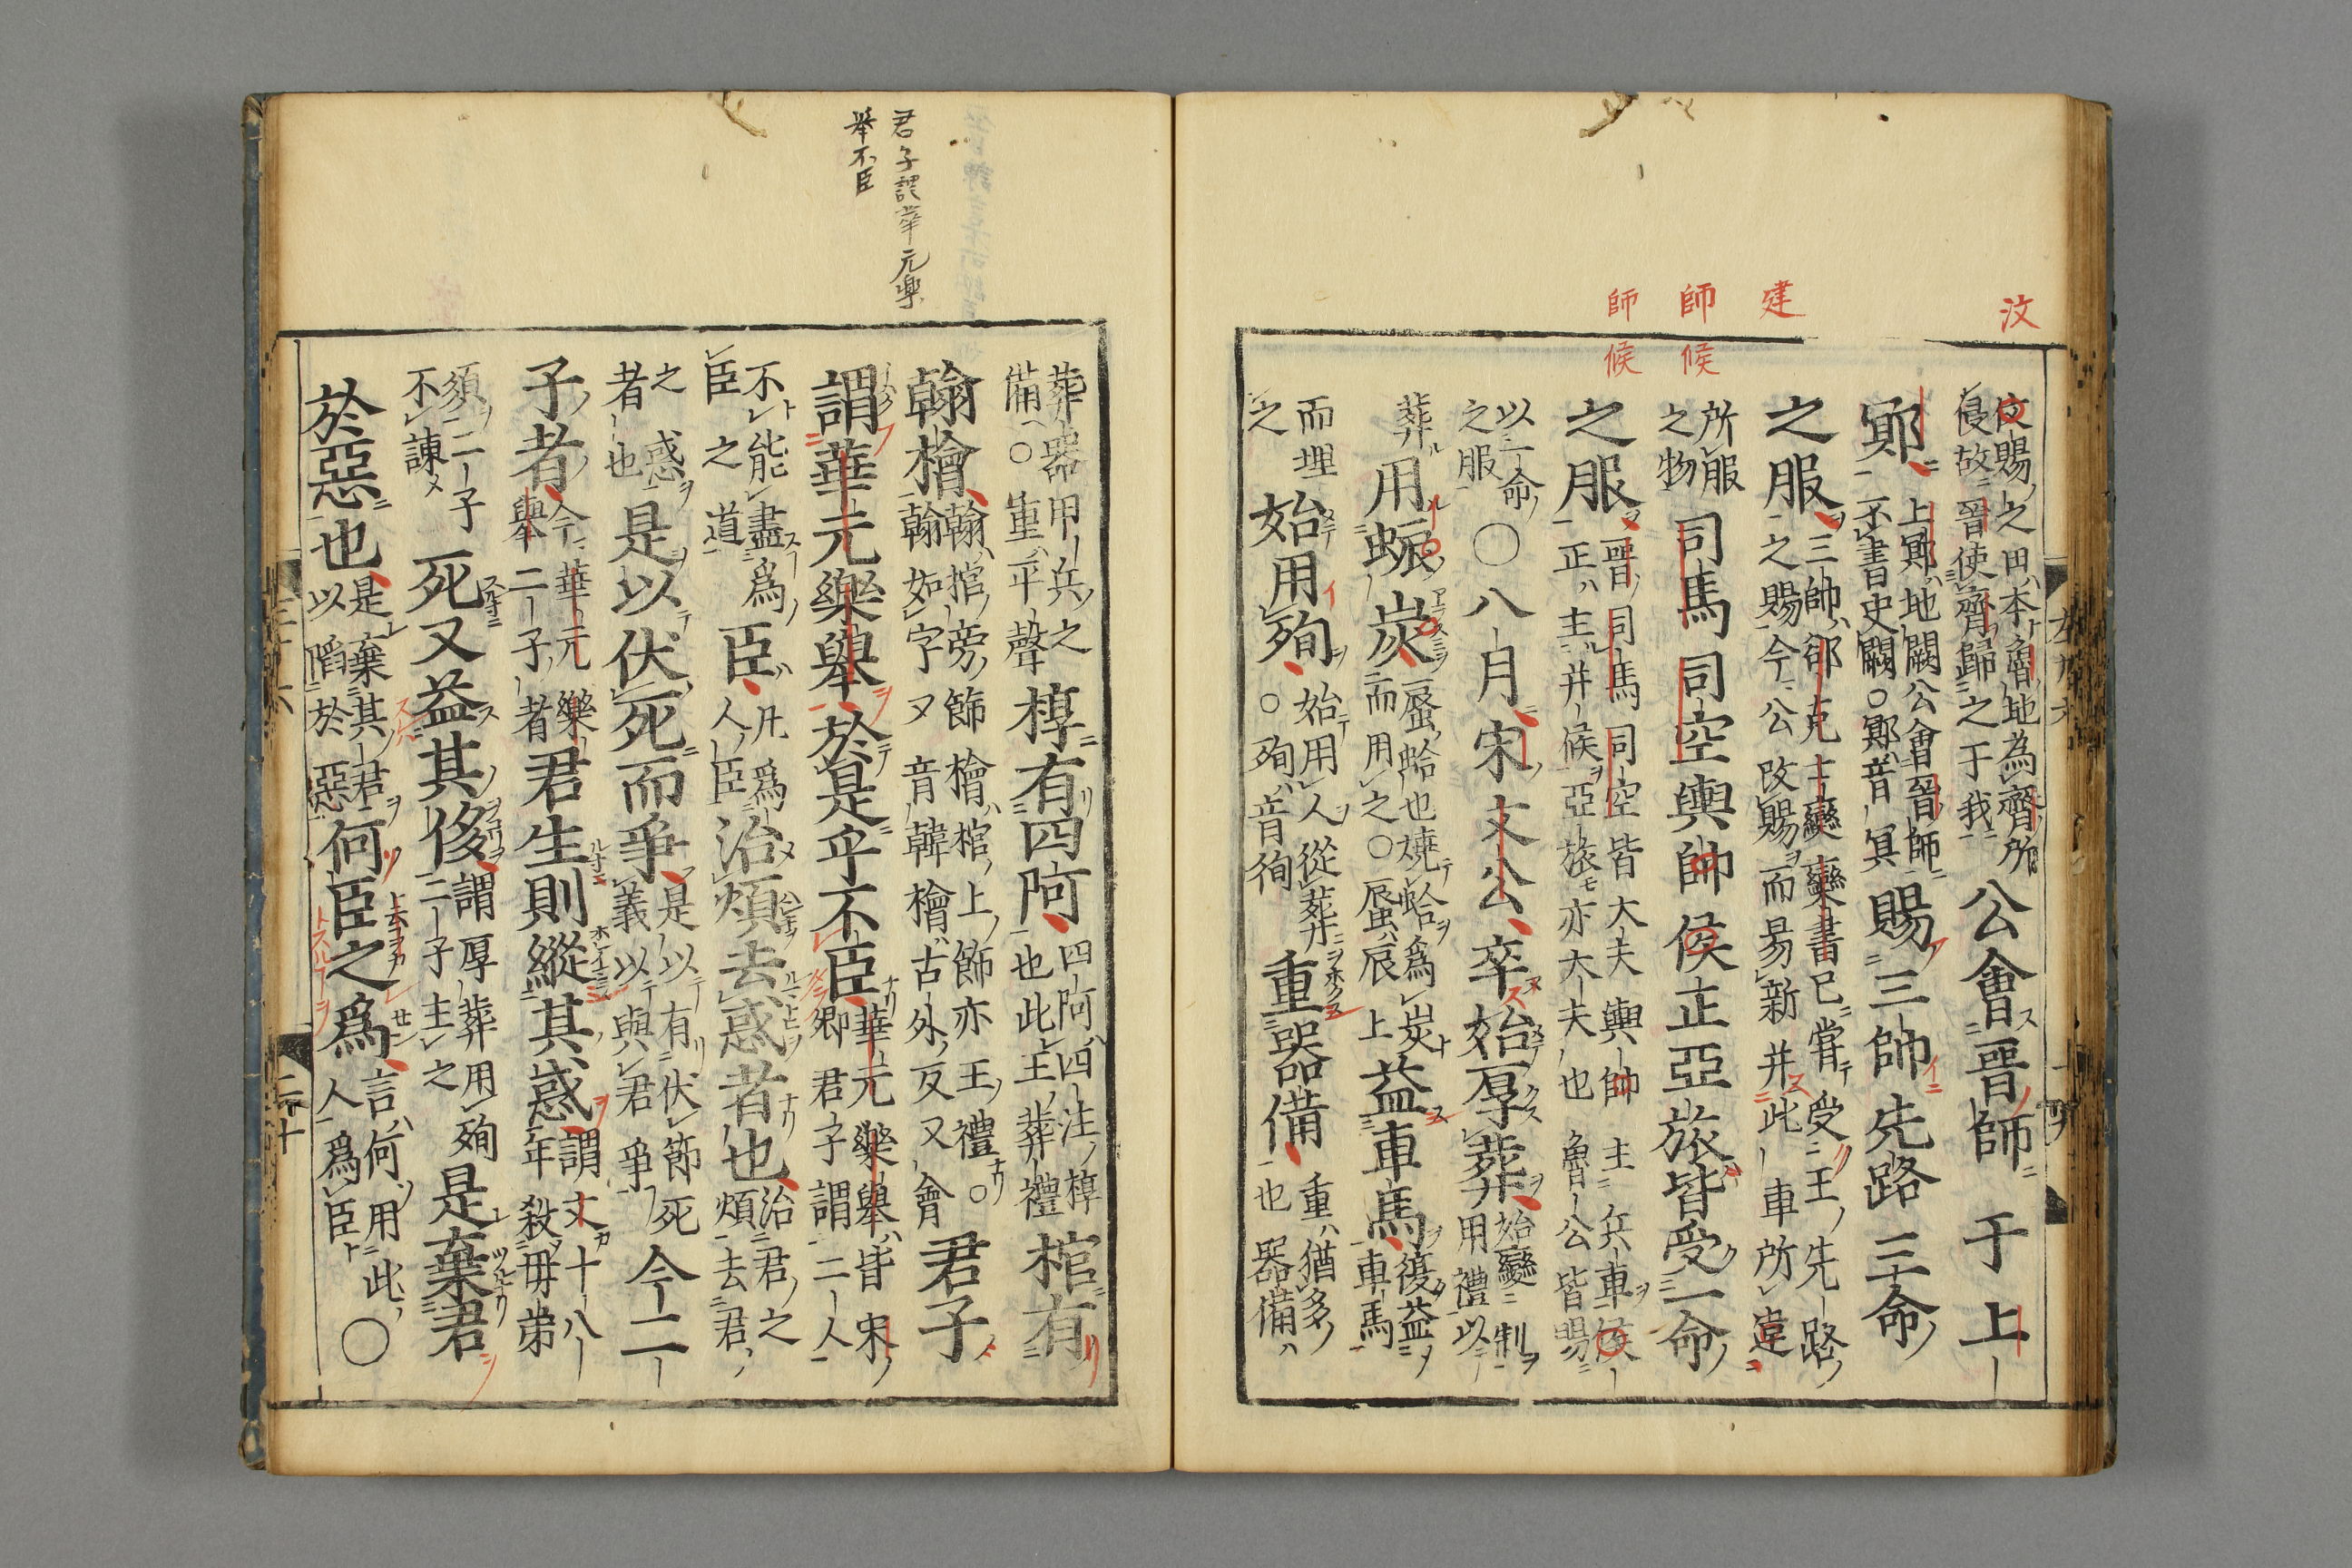 汶
建
師 候
師 候
汶賜之田本魯地為齊所
侵故晉使齊歸之于我
公會晉師于上
鄍
上鄍地闕公會晉師
不書史闕○鄍音冥
賜三帥先路三命
之服
三帥郤克士燮欒書已嘗受王先路
之賜今公改賜而易新并此車所違
所服
之物
司馬司空輿帥侯正亞旅皆受一命
之服
晉司馬司空皆大夫輿帥主兵車侯
正主并候亞旅亦大夫也魯公皆賜
以一命
之服
○八月宋文公卒始厚葬
始變制
用禮以
葬
用蜃炭
蜃蛤也燒蛤爲炭
而用之○蜃辰上
益車馬
復益
車馬
而埋
之
始用殉
始用人從葬
○殉音徇
重器備
重猶多
也器備
葬器甲兵之
備○重平聲
椁有四阿
四阿四注椁
也此王葬禮
棺有
翰檜
翰棺旁飾檜棺上飾亦王禮○
翰如字又音韓檜古外反又會
君子
謂華元樂舉於是乎不臣
華元樂舉皆宋
卿君子謂二人
不能盡爲
臣之道
臣
凡爲
人臣
治煩去惑者也
治君之
煩去君
之惑
者也
是以伏死而爭
是以有伏節死
義以與君爭
今二
子者
今華元樂
舉二子者
君生則縱其惑
謂文十八
年殺母弟
須
二子
不諫
死又益其侈
謂厚葬用殉
二子主之
是棄君
於惡也
是棄其君
以陷於惡
何臣之爲
言何用此
人爲臣
○
君子謂華元樂
舉不臣
二十